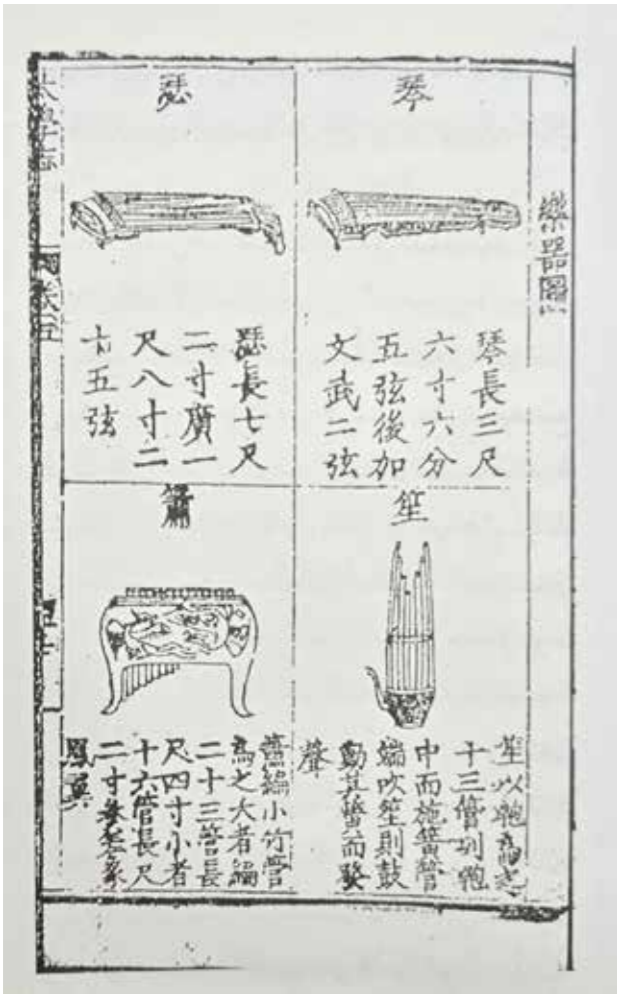 樂器圖
琴
琴長三尺
六寸六分
五弦後加
文武二弦
瑟
瑟長七尺
二寸廣一
尺八寸二
十五弦
笙
笙以匏為之
十三管列匏
中而施簧管
端吹笙則鼓
動其簧而發
聲
簫
簫編小竹管
為之大者編
二十三管長
尺四寸小者
十六管長尺
二寸參差象
鳳翼
太學志